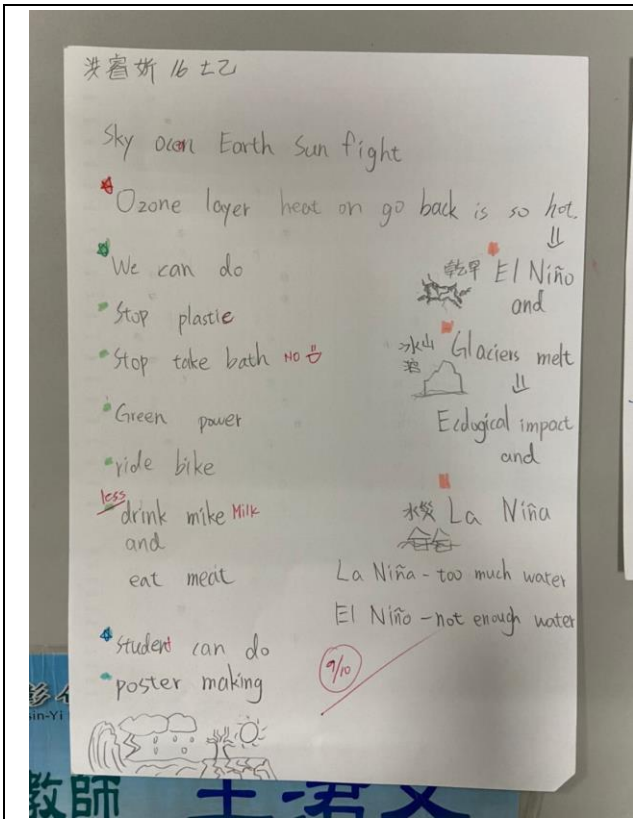 16
Sky Ocen Earth Sun fight
Ozone layer heat on go back is so hot.
We can do
Stop plastic
Stop take bath NO
Green power
ride bike
less
drink mike Milk
and
eat meat
Student can do
poster making
乾旱 El Niño
and
冰山 Glaciers melt
溶
Ecological impact
and
水災 La Niña
La Niña - too much water
El Niño - not enough water
9/10
教師